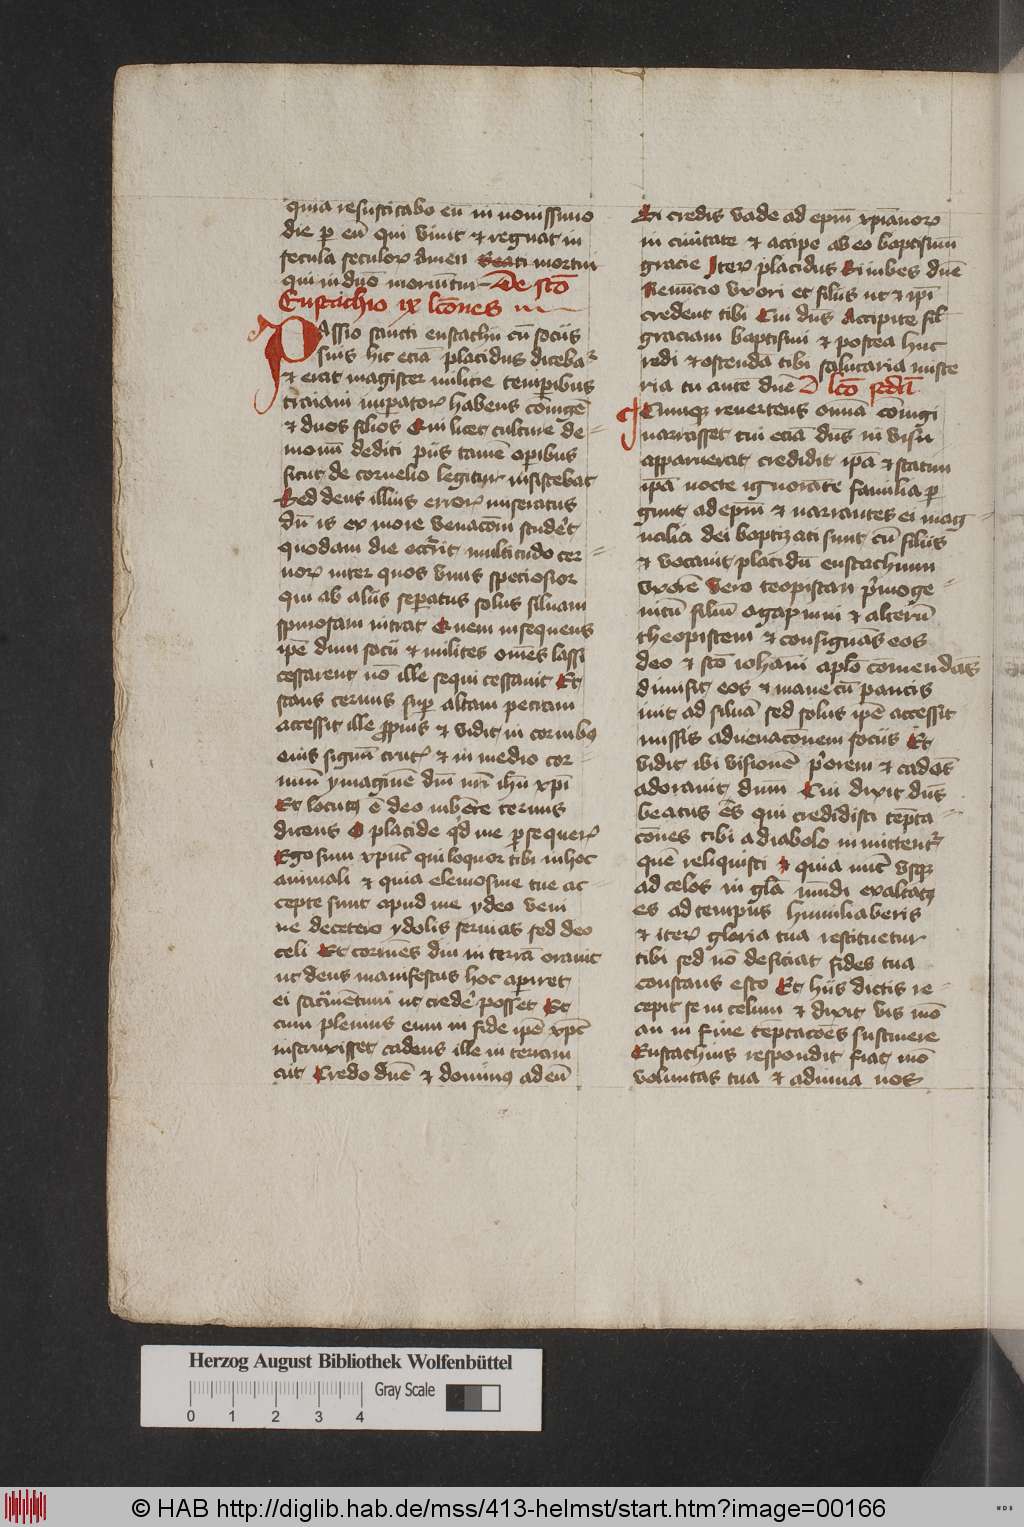 quia resuscitabo eū in nouissimo
die p eū qui viuit et regnat in
secula seculoꝝ amen Beati mortui
qui in dnō moriūtur De scō
Eustachio ix lcōnes
PAssio sancti eustachii cū sociis
suis hic eciā placidus dicebat᷑
et erat magister milicie temporibus
traiani imperatoꝝ habens cōiugē
et duos filios Qui licet culture de-
monū dediti piis tamē operibus
sicut de cornelio legitur insistebat
Sed deus illius erroꝝ miseratus
dū is ex more venacōni studeret
quodam die occ̄rit multitudo cer-
uoꝝ inter quos vnus speciosior
qui ab aliis seperatus solus siluam
spinosam intrat Quem insequens
ipē dum socii et milites oīnes lassi
cessarent nō ille sequi cessauit Et
stans ceruus sup altam petram
accessit ille ꝓpius et vidit in cornibꝰ
eius signū cruc᷑ et in medio cor-
nuū ymaginē dnī nrī ihū xpī
Et locutꝰ ē deo iubente ceruus
dicens O placide qͥd me persequerꝭ
Ego sum xpūc qui loquor tibi in hoc
animali et quia elemosine tue ac-
cepte sunt apud me ydeo veni
ne decetero ydolis seruias sed deo
celi Et corruēs diu in terrā orauit
ut deus manifestus hoc aperiret
ei sacrūentum ut credere posset Et
cum plenius eum in fide ipē xpūc
instruxisset cadens ille in terram
ait Credo dnē et dominꝰ ad eū
Si credis vade ad epm̄ xpīanoꝝ
in ciuitate et accipe ab eo baptismū
gracie Iteꝝ placidus Si iubes dnē
Renūcio vxori et filiis ut et ipī
credent tibi Cui dns̄ Accipite sil᷑
graciam baptismi et postea huc
redi et ostendā tibi salutaria miste
ria tu aute dnē D lcō scdā
Cumqꝫ reuertens omīa cōiugi
narrasset cui eciā dns̄ in visu
apparuerat credidit ipā et statim
ipā nocte ignorāte familia per
gunt ad epm̄ et narrantes ei mag-
nalia dei baptizati sunt cū filiis
et vocauit placidū eustachium
vxorē vero teopistan pͥmoge-
nitū filiū agapium et alterū
theopistem et consignas eos
deo et scō iohāni aplō comendās
dimisit eos et mane cū paucis
iuit ad siluā sed solus ipē accessit
missis ad venacōnem sociis Et
vidit ibi visionē pͥorem et cadēs
adorauit dnm̄ Cui dixit dns̄
beatus ēs qui credidisti tepta-
cōnes tibi a diabolo immittent᷑
quē reliquisti et quia nūc vsqꝫ
ad celos in glā mūdi exaltatꝰ
es ad tempus humiliaberis
et iteꝝ gloria tua restituetur
tibi sed nō deficiat fides tua
constans esto Et hiis dictis re-
cepit se in celum et dixit vis mō
an in fine teptacōēs sustinere
Eustachius respondit fiat mō
voluntas tua et adiuua nos
Herzog August Bibliothek Wolfenbüttel
Gray Scale
0 1 2 3 4
© HAB http://diglib.hab.de/mss/413-helmst/start.htm?image=00166